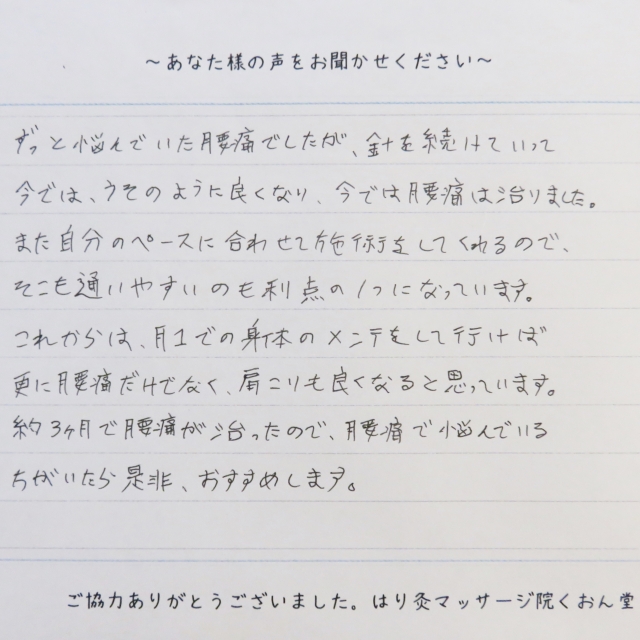 ～あなた様の声をお聞かせください～
ずっと悩んでいた腰痛でしたが、針を続けていって
今では、うそのように良くなり、今では腰痛は治りました。
また自分のペースに合わせて施術をしてくれるので、
そこも通いやすいのも利点の1つになっています。
これからは、月1での身体のメンテをして行けば
更に腰痛だけでなく、肩こりも良くなると思っています。
約3ヶ月で腰痛が治ったので、腰痛で悩んでいる
方がいたら是非、おすすめします。
ご協力ありがとうございました。はり灸マッサージ院くおん堂